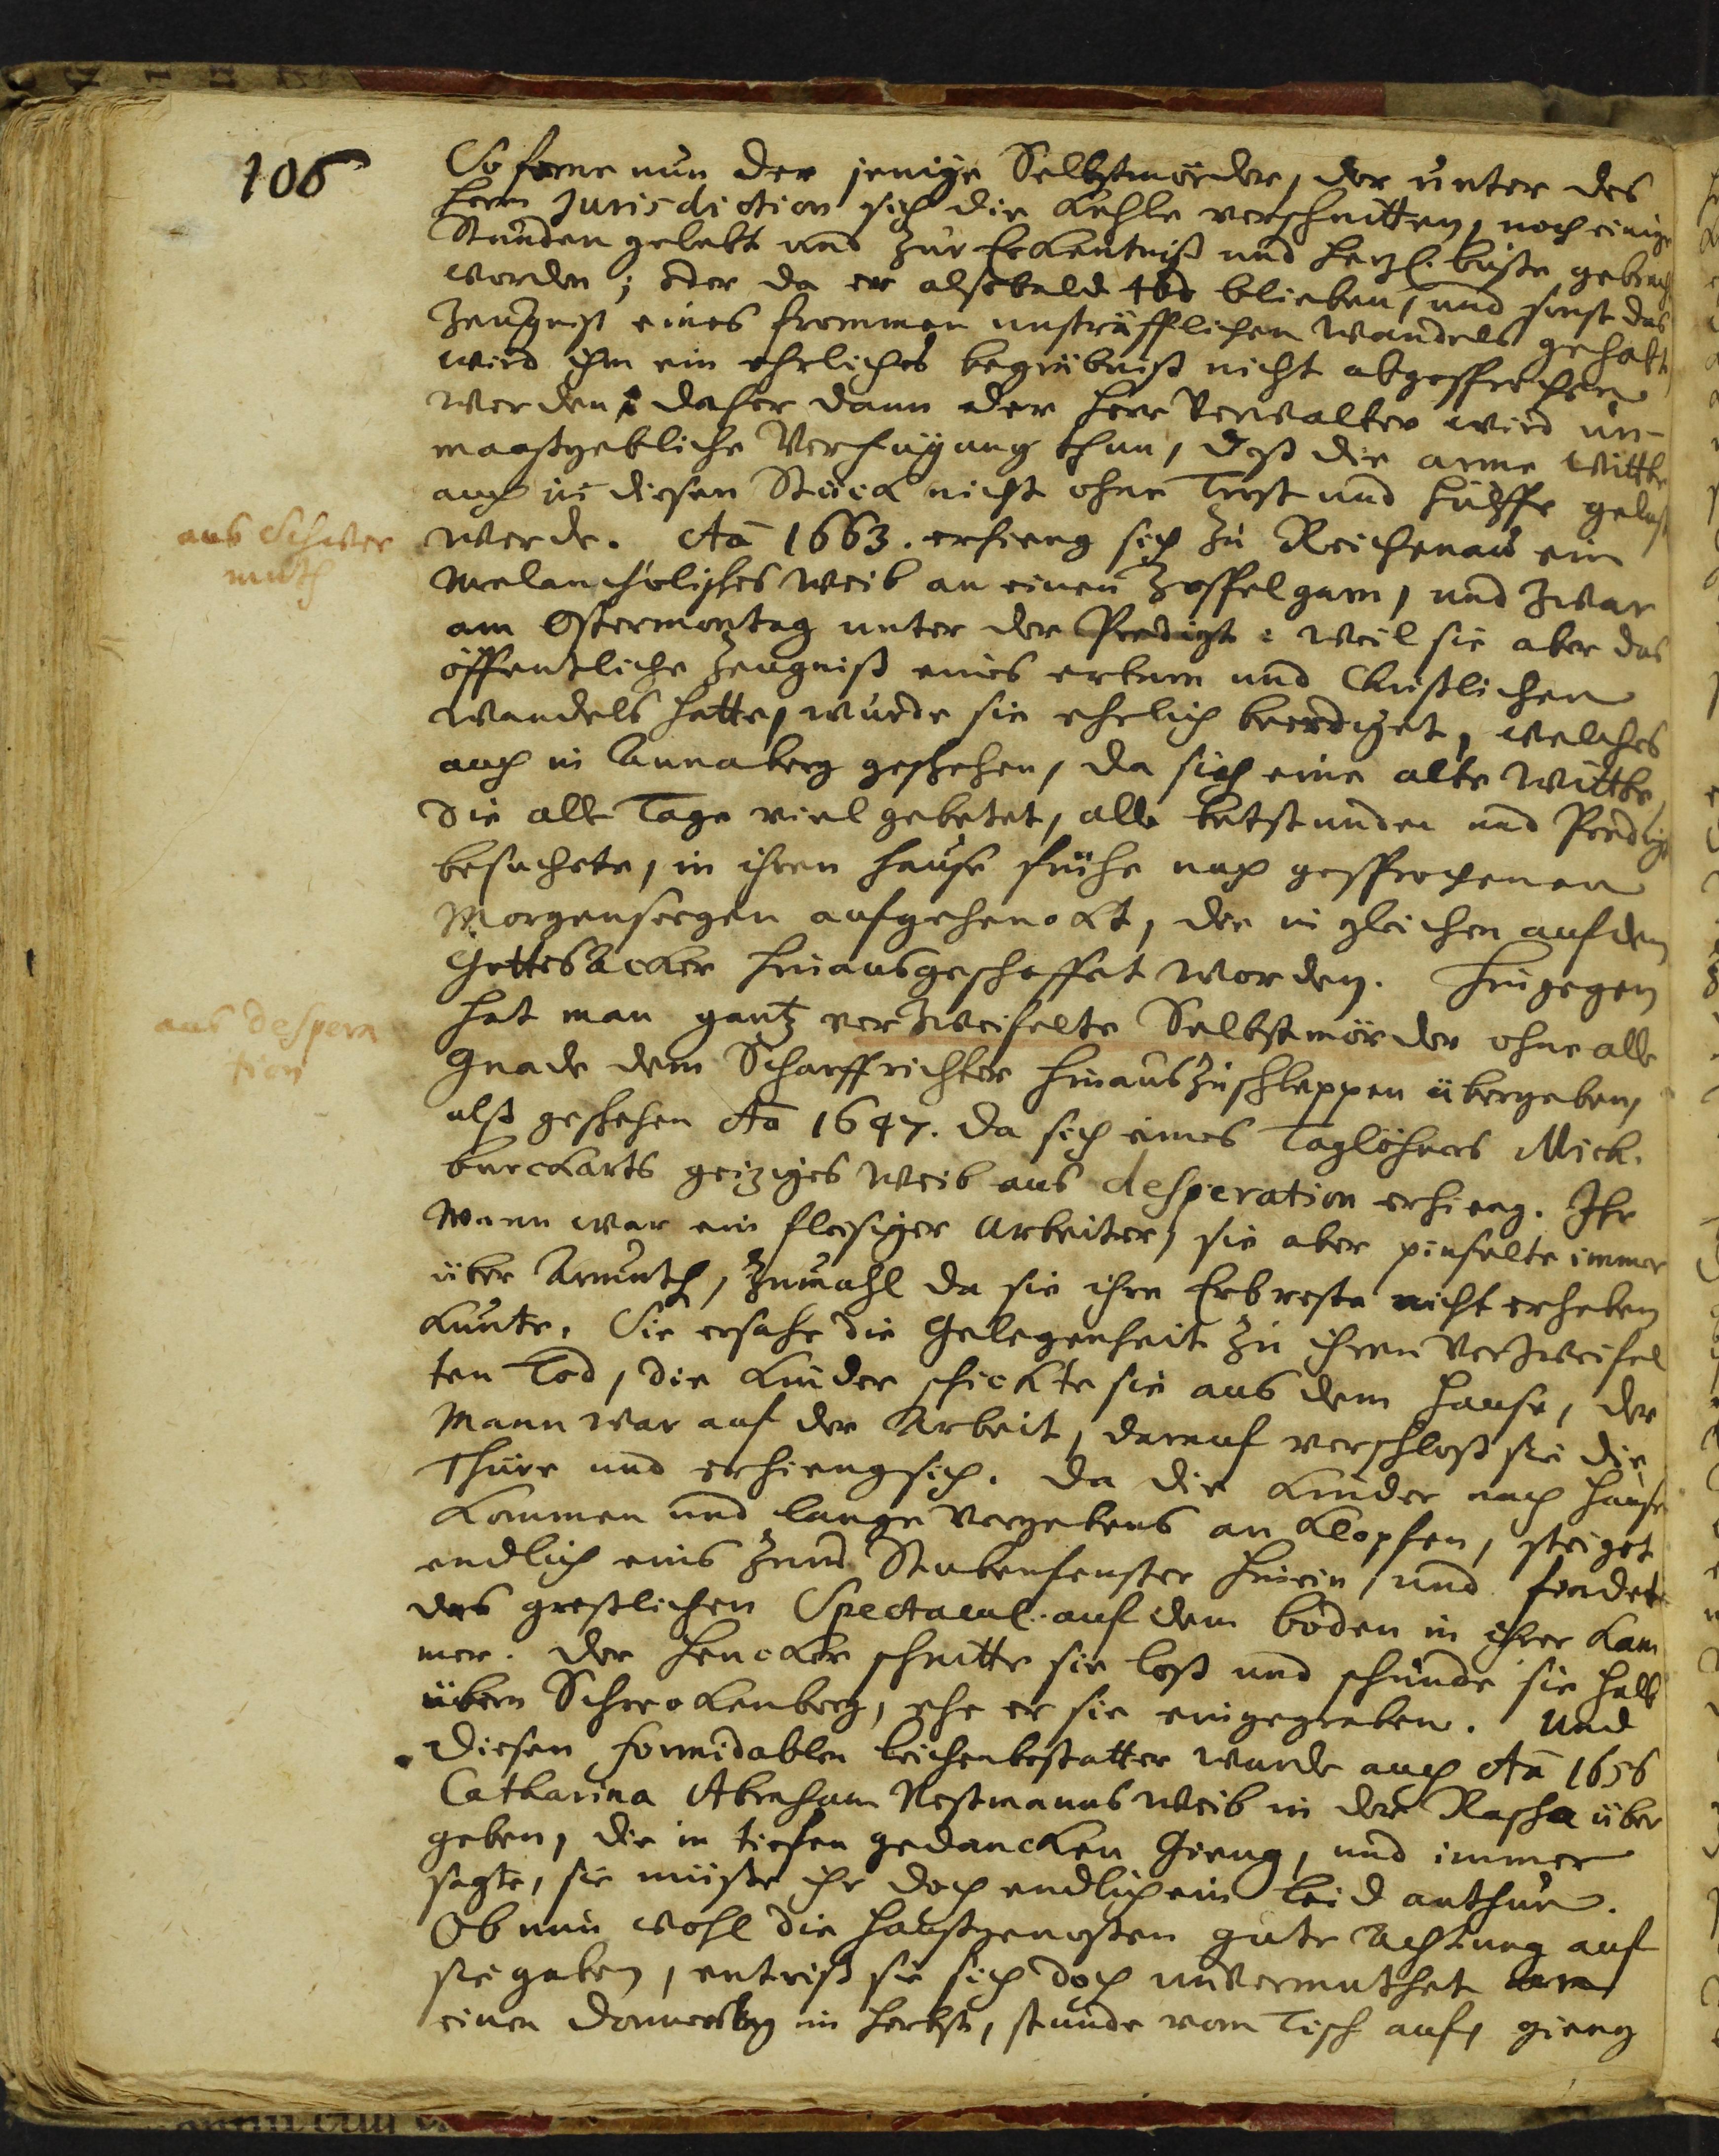 106
So ferne nun der jenige Selbstmörder, der unter des
Herrn Jurisdiction sich die Kehle verschnitten, noch einige
Stunden gelebt und zur Erkentniß und hertzl. buße gebracht
worden; oder da er alsobald tod blieben, und sonst das
Zeugniß eines frommen unsträfflichen Wandels gehabt,
wird ihm ein ehrliches begräbniß nicht abgesprochen
werden; daher dann der Herr Verwalter wird un-
maaßgebliche Verfügung thun, daß die arme Wittbe
auch in diesen Stück nicht ohne Trost und Hülffe gelaßen
aus Schwer
muth
werde. Aō 1663. erhieng sich zu Reichenau ein
melancholisches Weib an einen Zaffelgarn, und zwar
am Ostermontag unter der Predigt: weil sie aber das
öffentliche Zeugniß eines erbarn und Christlichen
Wandels hatte, wurde sie ehrlich beerdiget, welches
auch in Annaberg geschehen, da sich eine alte Wittbe,
die alle Tage viel gebetet, alle betstunden und Predigt
besuchete, in ihren Hause frühe nach gesprochenen
Morgenseegen aufgehenckt, die in gleichen auf den
Gottesacker hinausgeschaffet worden. Hingegen
aus despera
tion
hat man gantz verzweifelte Selbstmörder ohne alle
Gnade dem Scharffrichter hinaus zuschleppen übergeben,
alß geschehen Aō 1647. da sich eines Taglöhners Mich.
burckarts geiziges Weib aus desperation erhieng. Ihr
Mann war ein fleisiger Arbeiter, sie aber pinselte immer
über Armuth, zumahl da sie ihre Erbreste nicht erheben
kunte. Sie ersahe die Gelegenheit zu ihren verzweifel
ten Tod, die Kinder schickte sie aus dem Hause, der
Mann war auf der Arbeit, darauf verschloß sie die
Thüre und erhieng sich. Da die Kinder nach Hause
kommen und lange vergebens anklopfen, steiget
endlich eins zum Stubenfenster hinein, und findet
das greßlichen Spectacul auf dem boden in ihrer Kam
mer. Der Hencker schnitte sie loß und schunde sie halb
übern Schreckenberg, ehe er sie eingegraben. Und
diesen formidablen leichenbestatter wurde auch Aō 1656
Catharina Abraham Nestmanns Weib in der Rascha über
geben, die in tiefen gedancken gieng, und immer
sagte, sie müste ihr doch endlich ein leid anthun.
Ob nun wohl die Haußgenoßen gute Achtung auf
sie gaben, entriß sie sich doch unvermuthet
einen Donnerstag im Herbst, stunde vom Tisch auf, gieng